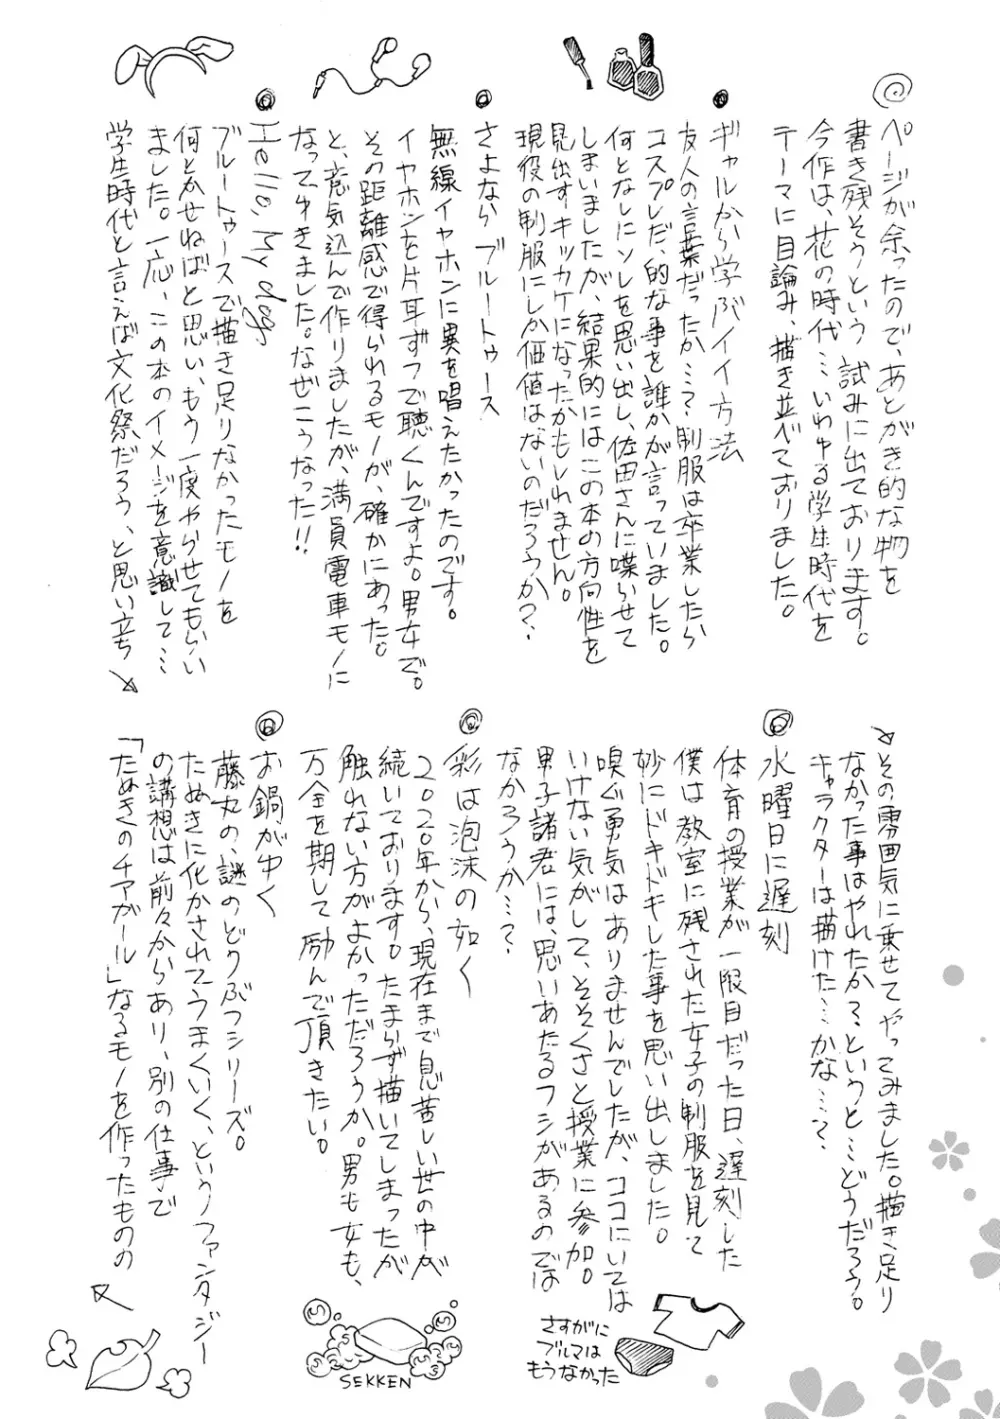 ページが余ったので、あとがき的な物を
書き残そうという、試みに出ております。
今作は、花の時代…いわゆる学生時代を
テーマに目論み、描き並べておりました。
ギャルから学ぶイイ方法
友人の言葉だったか…？制服は卒業したら
コスプレだ、的な事を誰かが言っていました。
何となしにソレを思い出し、佐田さんに喋らせて
しまいましたが、結果的にはこの本の方向性を
見出すキッカケになったかもしれません。
現役の制服にしか価値はないのだろうか？
さよならブルートゥース
無線イヤホンに異を唱えたかったのです。
イヤホンを片耳ずつで聴くんですよ。男女で。
その距離感で得られるモノが、確かにあった。
と、意気込んで作りましたが、満員電車モノに
なってゆきました。なぜこうなった!!
Hello, My dog.
ブルートゥースで描き足りなかったモノを
何とかせねばと思い、もう一度やらせてもらい
ました。一応、この本のイメージを意識して…
学生時代と言えば文化祭だろう、と思い立ち
その雰囲気に乗せてやってみました。描き足り
なかった事はやれたか？、というと…どうだろう。
キャラクターは描けた…かな…？
水曜日に遅刻
体育の授業が一限目だった日、遅刻した
僕は教室に残された女子の制服を見て
妙にドキドキした事を思い出しました。
嗅ぐ勇気はありませんでしたが、ココにいては
いけない気がして、そそくさと授業に参加。
男子諸君には、思いあたるフシがあるのでは
なかろうか…？
さすがに
ブルマは
もうなかった
彩は泡沫の如く
2020年から、現在まで息苦しい世の中が
続いております。たまらず描いてしまったが
触れない方がよかっただろうか。男も女も、
万全を期して励んで頂きたい。
SEKKEN
お鍋がゆく
藤丸の、謎のどうぶつシリーズ。
たぬきに化かされてうまくいく、というファンタジー
の講想は前々からあり、別の仕事で
「たぬきのチアガール」なるモノを作ったものの